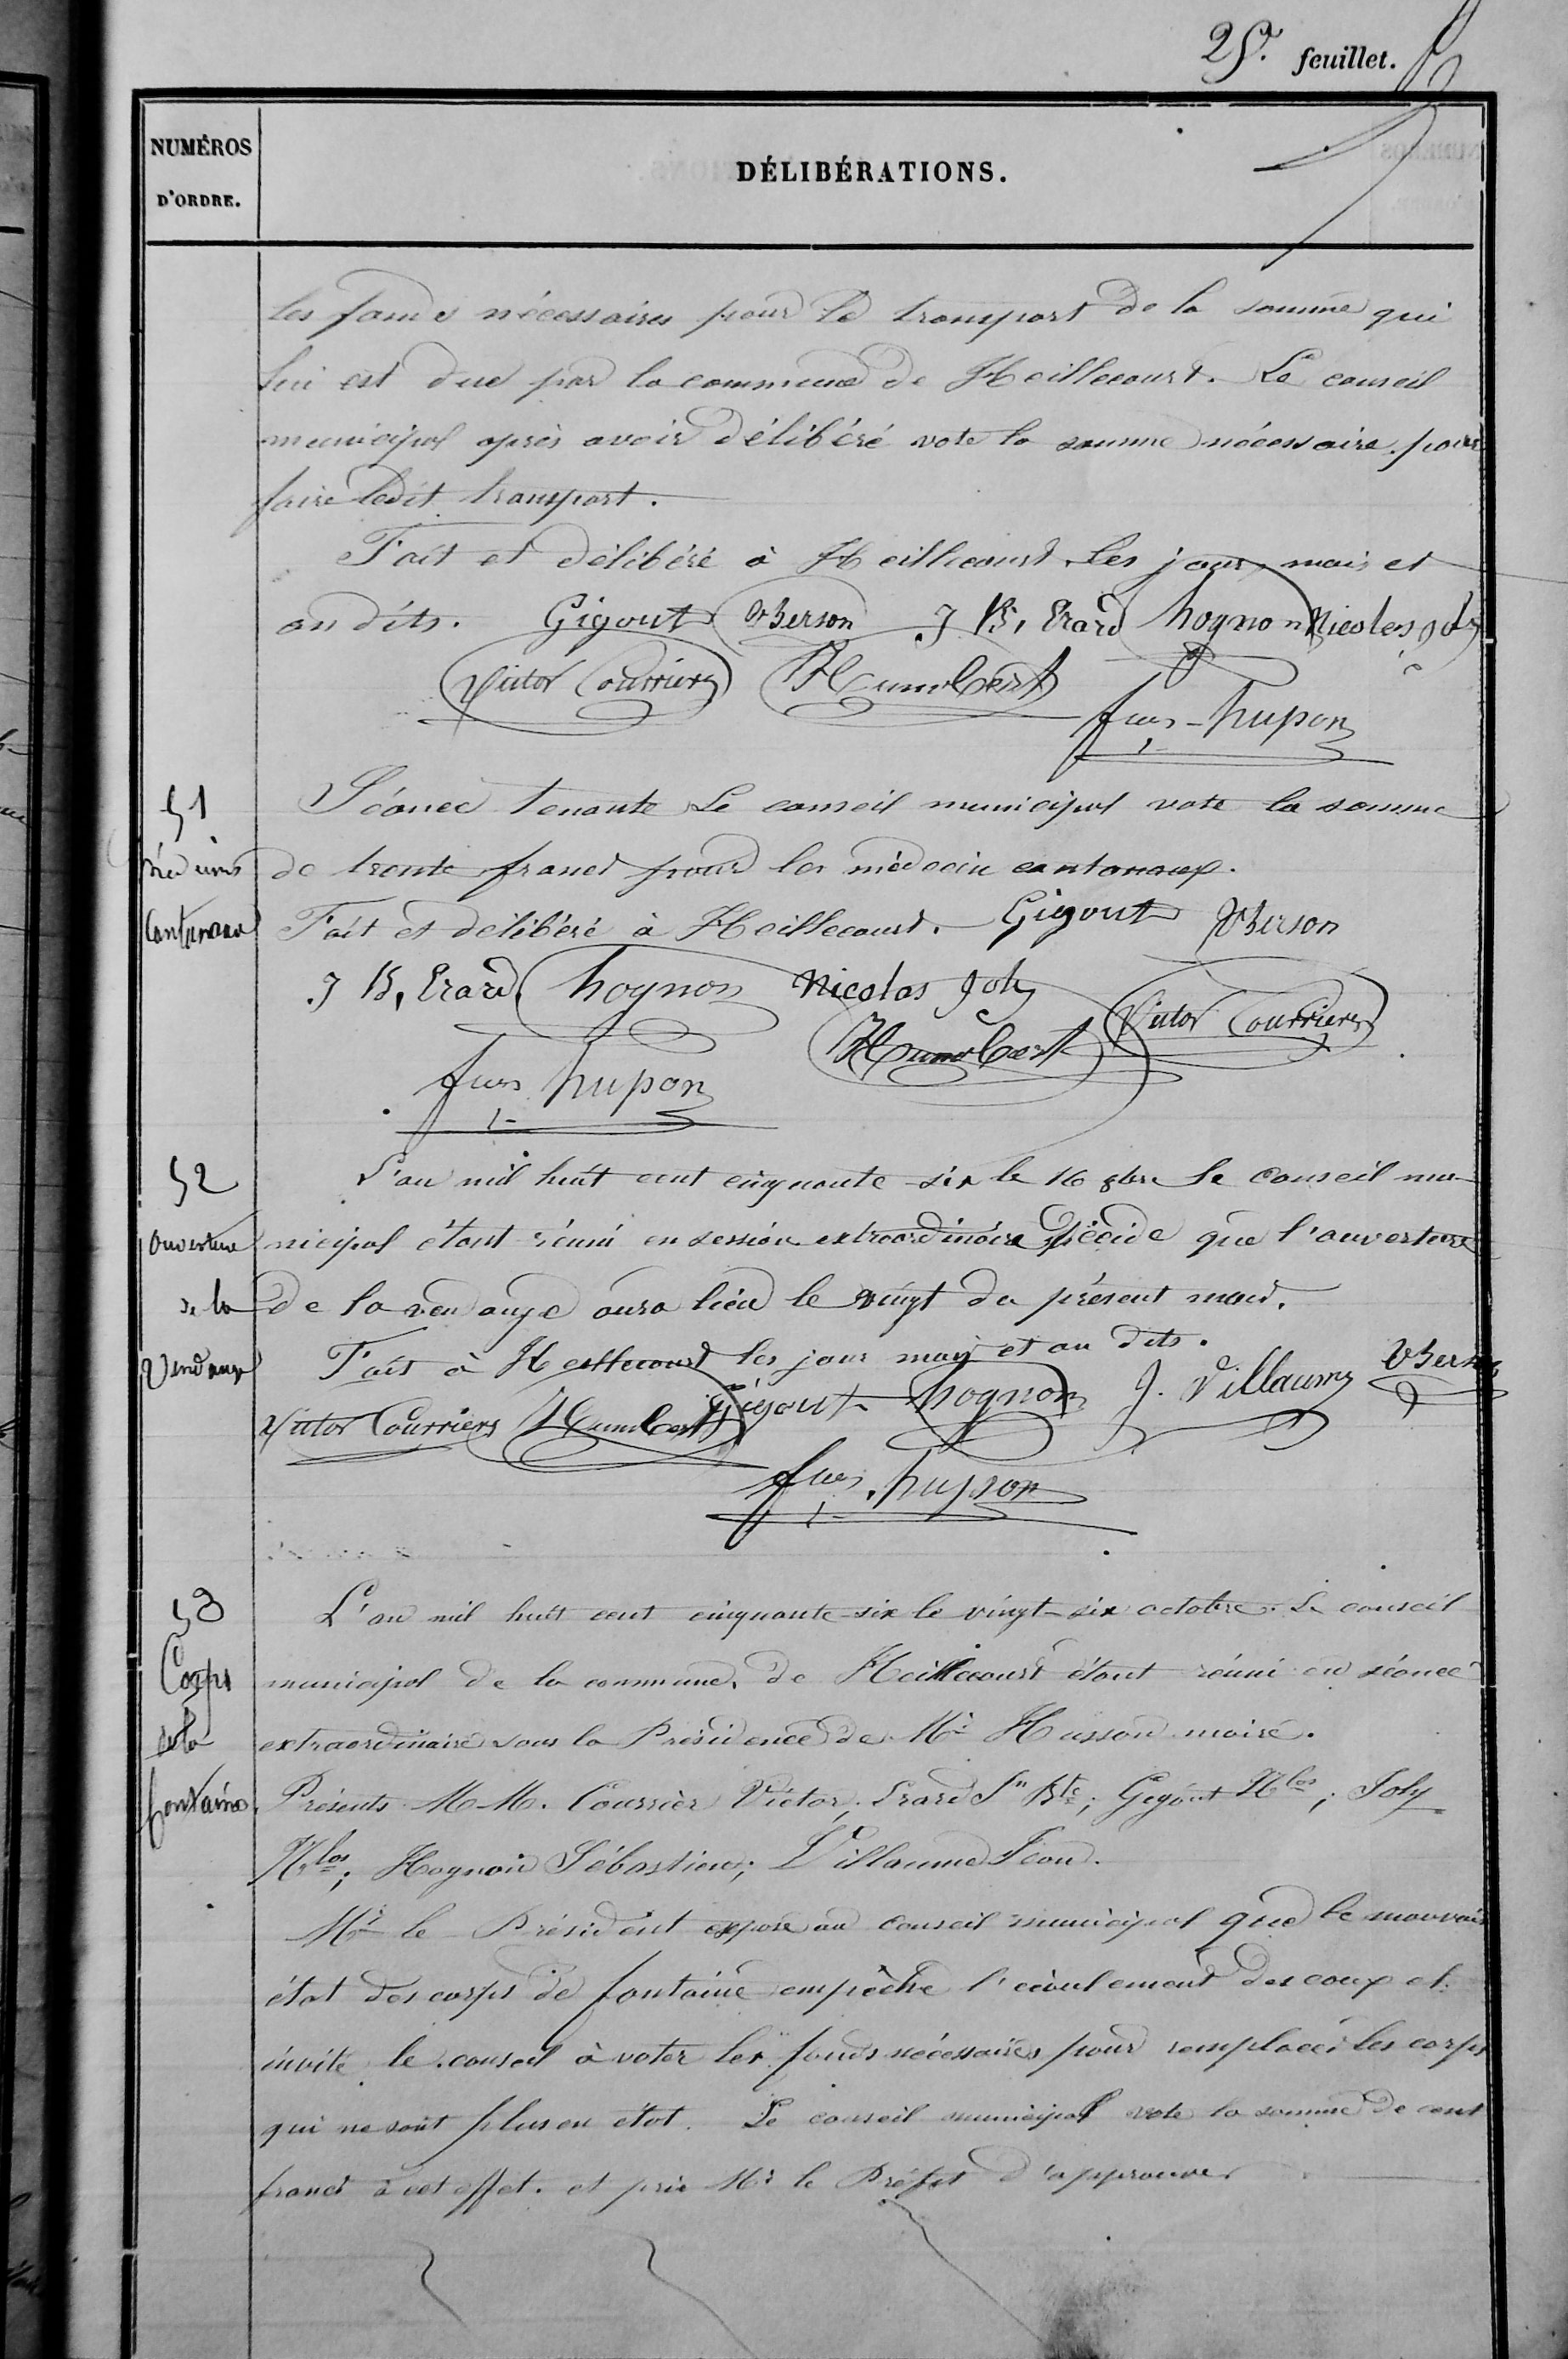 25e feuillet.
NUMÉROS
D'ORDRE.
DÉLIBÉRATIONS.
les fonds nécessaires pour le transport de la somme qui
lui est due par la commune de Heillecourt. Le conseil
municipal après avoir délibéré vote la somme nécessaire pour
faire ledit transport.
Fait et délibéré à Heillecourt, les jour, mois et
an dits. Gigout VBerson J B, Erard hognon Nicolas Joly
Victor Courrier Humbert
fcois hupon
51
Médecins
Cantonaux
Séance tenante Le conseil municipal vote la somme
de trente francs pour les médecin cantonaux.
Fait et délibéré à Heillecourt. Gigout VBerson
J B, Erard, hognon Nicolas Joly
Humbert Victor Courrier
hupon
52
Ouverture
de la
Vendange
L'an mil huit cent cinquante-six le 16 8bre Le Conseil mu-
nicipal étant réuni en session extraordinaire décide que l'ouverture
de la vendange aura lieu le vingt du présent mois.
Fait à Heillecourt les jour mois et an dits.
Victor Courrier Humbert Gigout hognon J. Villaume VBerson
hupon
53
Corps
de la
fontaine.
L'an mil huit cent cinquante-six le vingt-six octobre. Le conseil
municipal de la commune, de Heillecourt étant réuni en séance
extraordinaire sous la Présidence de Mr Husson maire.
Présents M M. Courrier Victor; Erard Jn Bte; Gigout Nlas; Joly
Nlas; Hognon Sébastien; Villaume Jean.
Mr le Président expose au conseil municipal que le mauvais
état des corps de fontaine empêche l'écoulement des eaux et
invite le conseil à voter les fonds nécessaires pour remplacer les corps
qui ne sont plus en état. Le conseil municipal vote la somme de cent
francs à cet effet. et prie Mr le Préfet d'approuver